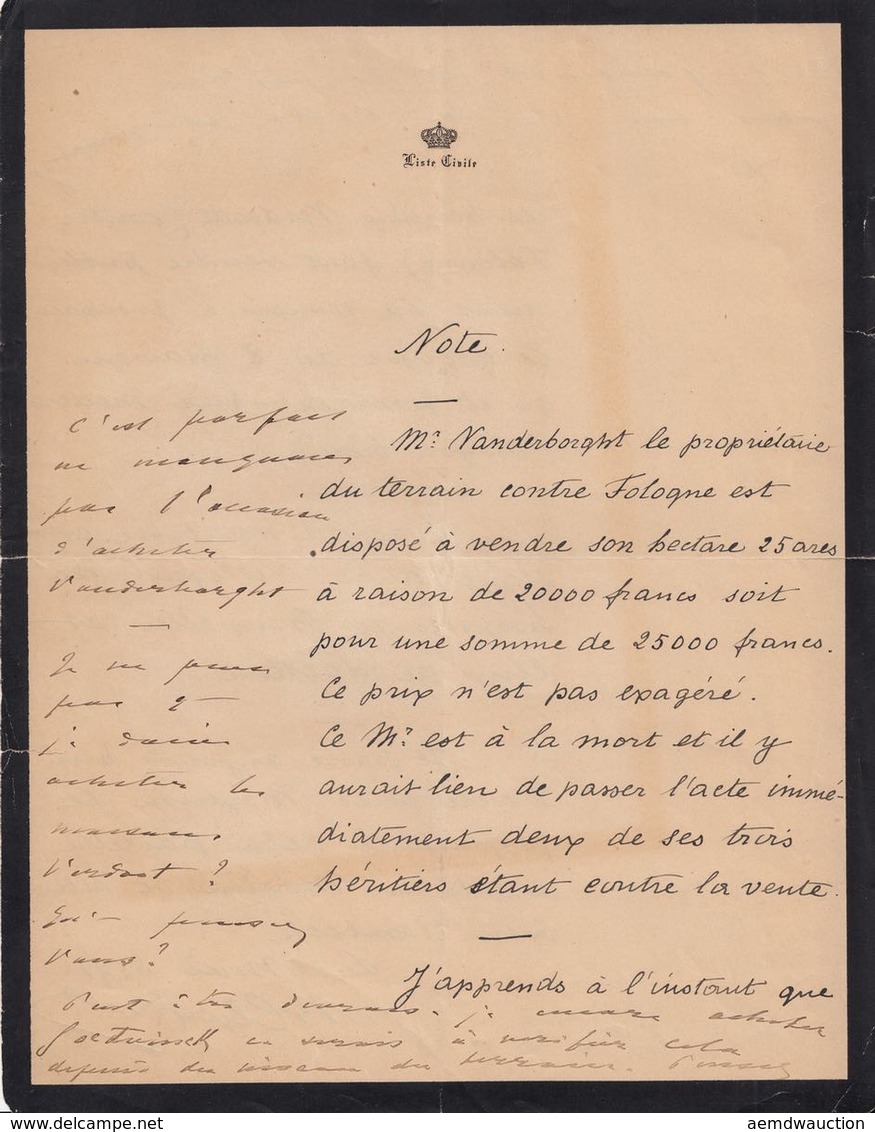 Liste Civile
Note.
Mr. Vanderborght le propriétaire
du terrain contre Fologne est
disposé à vendre son hectare 25 ares
à raison de 20000 francs soit
pour une somme de 25000 francs.
Ce prix n'est pas exagéré.
Ce Mr. est à la mort et il y
aurait lieu de passer l'acte immé-
diatement deux de ses trois
héritiers étant contre la vente.
J'apprends à l'instant que
c'est parfait
ne manquons
pas l'occasion
d'acheter
Vanderborght
Je ne pense
pas q
je doive
acheter les
maisons
Verdast ?
Qu'en pensez
Vous ?
Peut être devrais-je encore acheter
ce serait à vérifier cela
du niveau du terrain.
aemdwauction